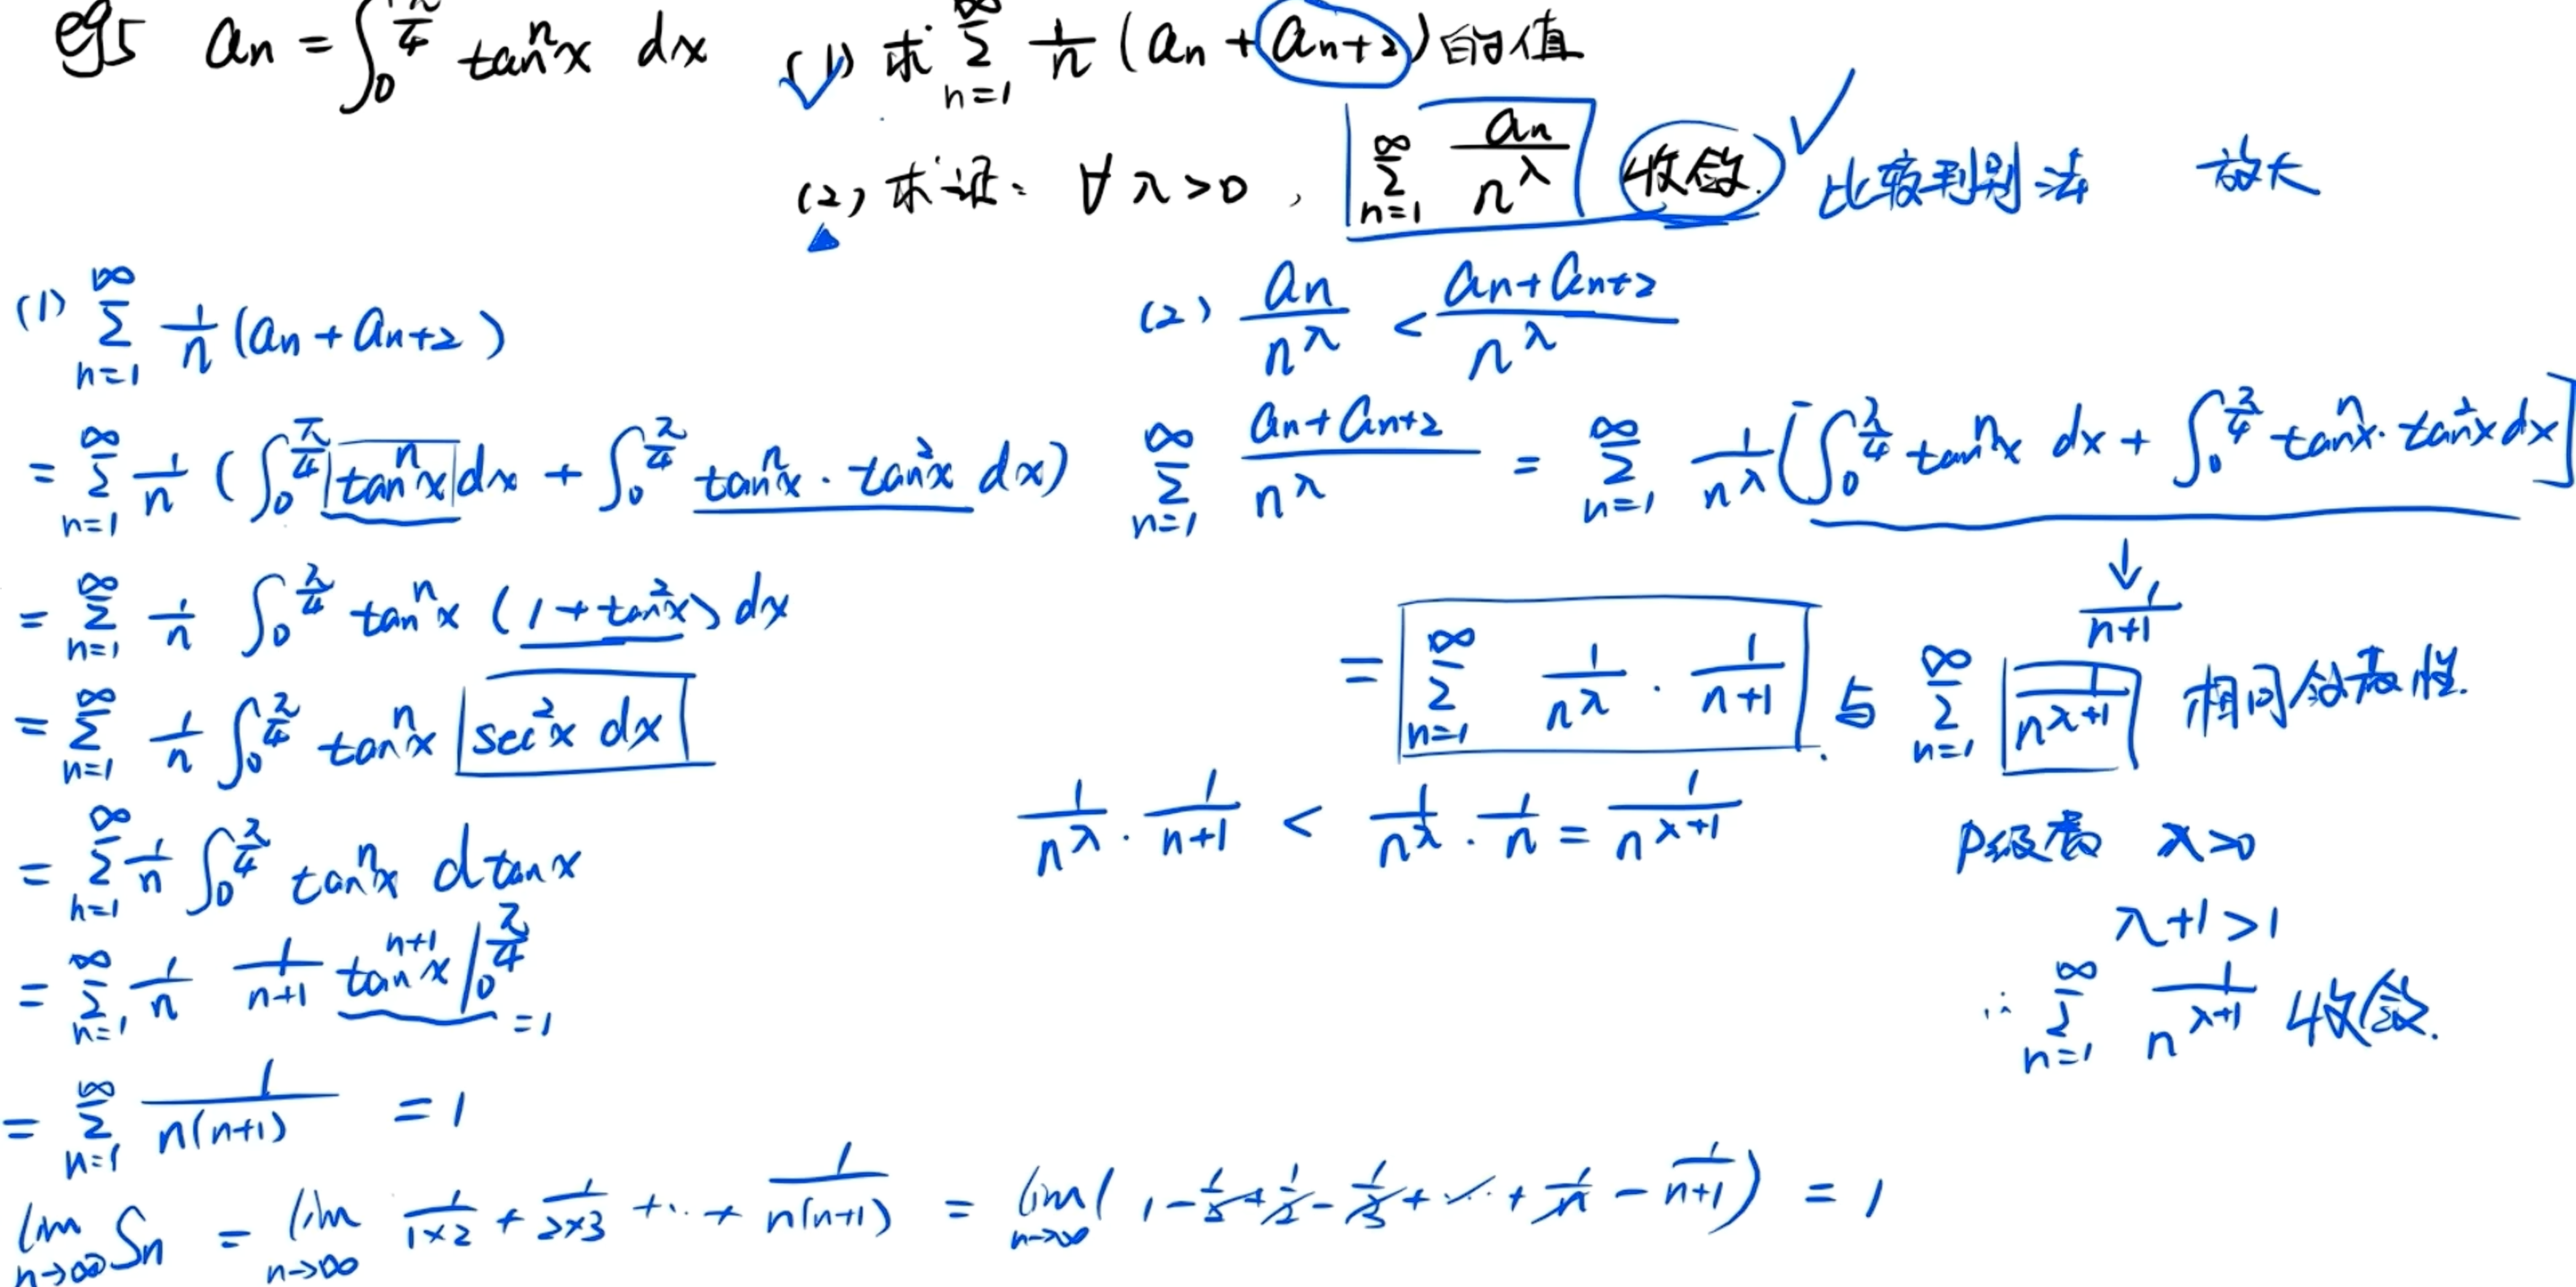 eg5 aₙ = ∫₀^(π/4) tanⁿx dx (1) 求 ∑_{n=1}^∞ 1/n (aₙ + aₙ₊₂) 的值
(2) 求证: ∀ λ>0, ∑_{n=1}^∞ aₙ/n^λ 收敛. 比较判别法 放大
(1) ∑_{n=1}^∞ 1/n (aₙ + aₙ₊₂)
= ∑_{n=1}^∞ 1/n (∫₀^(π/4) tanⁿx dx + ∫₀^(π/4) tanⁿx · tan²x dx)
= ∑_{n=1}^∞ 1/n ∫₀^(π/4) tanⁿx (1 + tan²x) dx
= ∑_{n=1}^∞ 1/n ∫₀^(π/4) tanⁿx sec²x dx
= ∑_{n=1}^∞ 1/n ∫₀^(π/4) tanⁿx dtanx
= ∑_{n=1}^∞ 1/n 1/(n+1) tanⁿ⁺¹x |₀^(π/4) = 1
= ∑_{n=1}^∞ 1/(n(n+1)) = 1
lim_{n→∞} Sₙ = lim_{n→∞} 1/(1×2) + 1/(2×3) + … + 1/(n(n+1)) = lim_{n→∞} (1 - 1/2 + 1/2 - 1/3 + … + 1/n - 1/(n+1)) = 1
(2) aₙ/n^λ < (aₙ + aₙ₊₂)/n^λ
∑_{n=1}^∞ (aₙ + aₙ₊₂)/n^λ = ∑_{n=1}^∞ 1/n^λ [∫₀^(π/4) tanⁿx dx + ∫₀^(π/4) tanⁿx · tan²x dx]
↓ 1/(n+1)
= ∑_{n=1}^∞ 1/n^λ · 1/(n+1) 与 ∑_{n=1}^∞ 1/n^(λ+1) 相同敛散性.
1/n^λ · 1/(n+1) < 1/n^λ · 1/n = 1/n^(λ+1)
P级数 λ>0
λ+1>1
∴ ∑_{n=1}^∞ 1/n^(λ+1) 收敛.